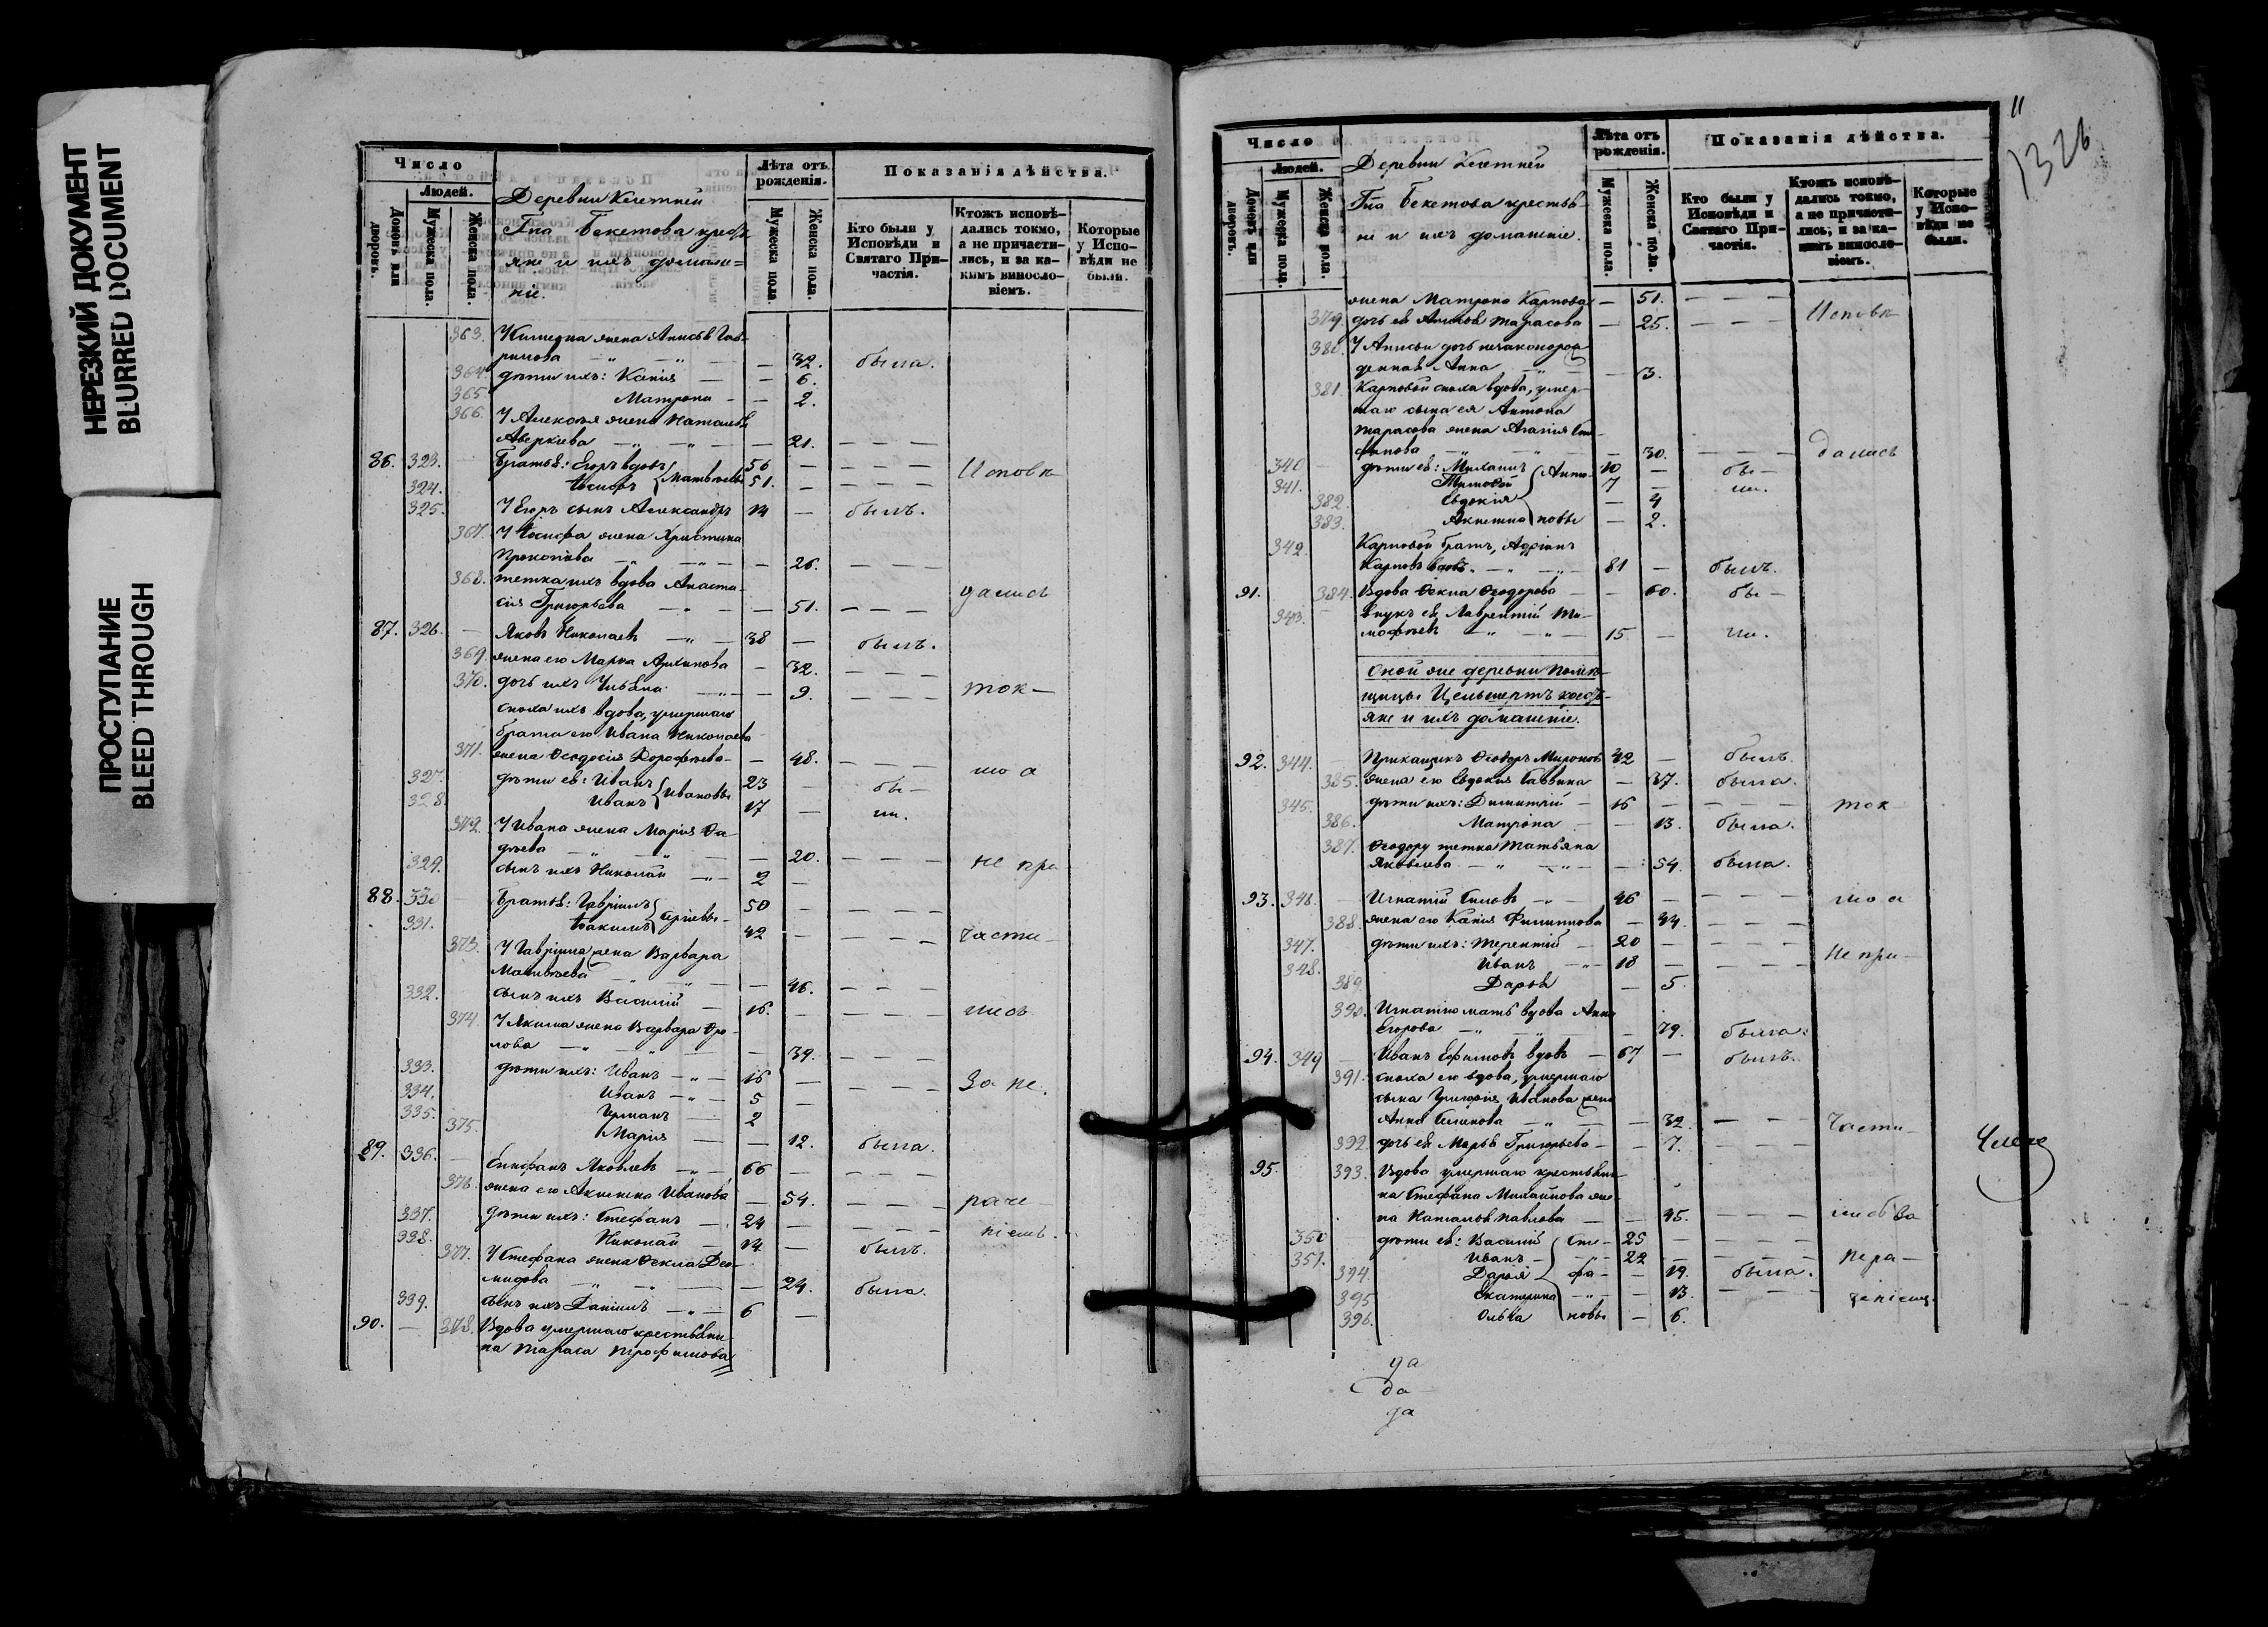 НЕРЕЗКИЙ ДОКУМЕНТ
BLURRED DOCUMENT
ПРОСТУПАНИЕ
BLEED THROUGH
Число
Людей.
Домовъ или дворовъ.
Мужеска пола.
Женска пола.
Деревни
Гна Бекетова кресть
яне и ихъ домаш=
ніе.
Лѣта отъ рожденія.
Мужеска пола.
Женска пола.
Показанія дѣйства.
Кто были у Исповѣди и Святаго Причастія.
Ктожъ исповѣдались токмо, а не причастились, и за какимъ винословіемъ.
Которые у Исповѣди не были.
363. жена Анисья Гав-
рилова — 32. была.
364. дѣти ихъ: Ксенія — 6.
365. Матрона — 2.
366. У Алексѣя жена Наталья
Аверкіева — 21. — — —
86. 323. Братья: Егоръ вдовъ 56 — — — — Исповѣ
324. Іосифъ Матвѣевы 51. — — — —
325. У Егора сынъ Александръ 14 — былъ.
367. У Іосифа жена Христина
Прокопіева — 26. — — —
368. тетка ихъ вдова Анаста-
сія Григорьева — 51. — — — дались
87. 326. — Яковъ Николаевъ 38 — былъ.
369. жена его Марѳа Архипова — 32. — — —
370. дочь ихъ Ульяна — 9. — — — ток—
сноха ихъ вдова, умершаго
брата его Ивана Николаева
371. жена Ѳеодосія Дорофѣева — 48. — — — мо а
327. дѣти ея: Иванъ 23 — бы—
328. Иванъ Ивановы 17 — ли.
372. У Ивана жена Марія Ѳа-
дѣева — 20. — — — не при
329. сынъ ихъ Николай 2 —
88. 330 — Братья: Гавріилъ 50 — — — —
331. Іоакимъ Сергіевы 42 — — — — части—
373. У Гавріила жена Варвара
Матвѣева — 46. — — —
332. сынъ ихъ Василій 16. — — — — лись
374. У Якима жена Варвара Фро-
лова — 39. — — —
333. дѣти ихъ: Иванъ 16 — — — — за не.
334. Иванъ 5 —
335. Германъ 2
375. Марія — 12. была.
89. 336. — Епифанъ Яковлевъ 66 — — — —
376. жена его Акилина Иванова — 54. — — — раче
337. дѣти ихъ: Стефанъ 24 — — — — ніемъ.
338. Николай 14 — былъ.
377. У Стефана жена Ѳекла Део-
мидова — 24. была.
339. сынъ ихъ Даніилъ 6 —
90. — 378. Вдова умершаго крестьяни-
на Тараса Трофимова
11
1326
Число
Людей.
Домовъ или дворовъ.
Мужеска пола.
Женска пола.
Деревни
Гна Бекетова крестья-
не и ихъ домашніе.
Лѣта отъ рожденія.
Мужеска пола.
Женска пола.
Показанія дѣйства.
Кто были у Исповѣди и Святаго Причастія.
Ктожъ исповѣдались токмо, а не причастились, и за какимъ винословіемъ.
Которые у Исповѣди не были.
жена Матрона Карпова — 51. — — — Исповѣ
379. дочь ея Анисья Тарасова — 25. — — —
380. У Анисьи дочь незаконорож-
денная Анна — 3.
381. Карповой сноха вдова, умер-
шаго сына ея Антона
Тарасова жена Агапія Сте-
фанова — 30. — — — дались
340 дѣти ея: Михаилъ Анто- 10 — бы—
341. Тимофей 7 — ли.
382. Евдокія — 4
383. Акилина новы — 2.
342. Карповой братъ, Адріанъ
Карповъ вдовъ 81 — былъ.
91. 384. Вдова Ѳекла Ѳеодорова — 60. бы—
343. внукъ ея Лаврентій Ти-
мофѣевъ 15 — ли.
Оной же деревни помѣ-
щицы Цельшертъ кресть-
яне и ихъ домашніе.
92. 344. Прикащикъ Ѳеодоръ Мироновъ 42 — былъ.
385. жена его Евдокія Саввина — 37. была.
345. дѣти ихъ: Димитрій 16 — — — — ток
386. Матрона — 13. была.
387. Ѳеодору тетка Татьяна
Яковлева — 54. была.
93. 346. — Игнатій Силовъ 46 — — — — мо а
388. жена его Ксенія Филиппова — 44. — — —
347. дѣти ихъ: Терентій 20 — — — —
348. Иванъ 18 — — — — не при—
389 Дарья — 5.
390. Игнатію мать вдова Анна
Егорова — 79. была.
94. 349 — Иванъ Ефимовъ вдовъ 67 — былъ.
391. сноха его вдова, умершаго
сына Григорія Иванова жена
Анна Семенова — 32. — — — части—
392. дочь ея Марья Григорьева — 7. — — —
95. 393. Вдова умершаго крестьяни-
на Стефана Михайлова же-
на Наталья Павлова — 45. — — —
350 дѣти ея: Василій Сте- 25 — — — —
351. Иванъ 22 — — — — нера—
394. Дарія фа- — 19. была.
395 Екатерина — 13. — — —
396. Ольга новы — 6.
да
да
да